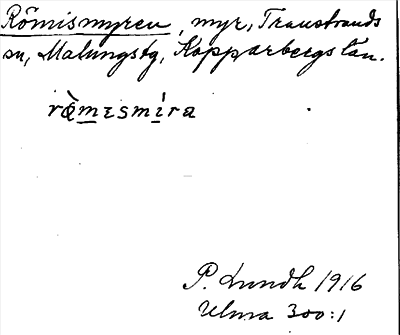 Römismyren, myr, Transtrands
sn, Malungstg, Kopparbergs län.
rö̀mɛsmíra
P. Lundh 1916
Ulma 300:1